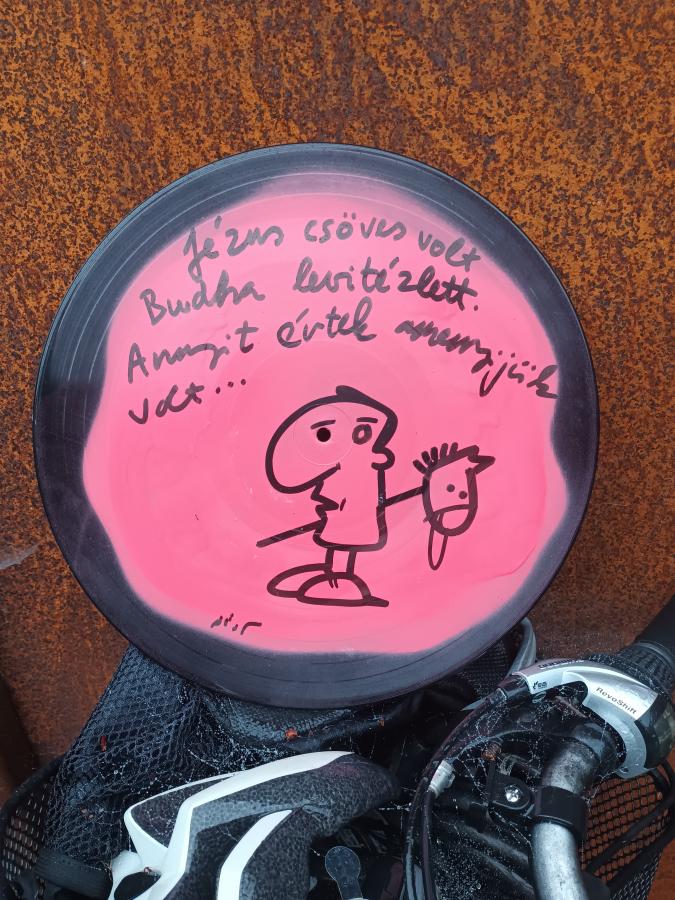 Jézus csöves volt
Buddha levitézlett.
Annyit értek amennyijük
volt...
RevoShift